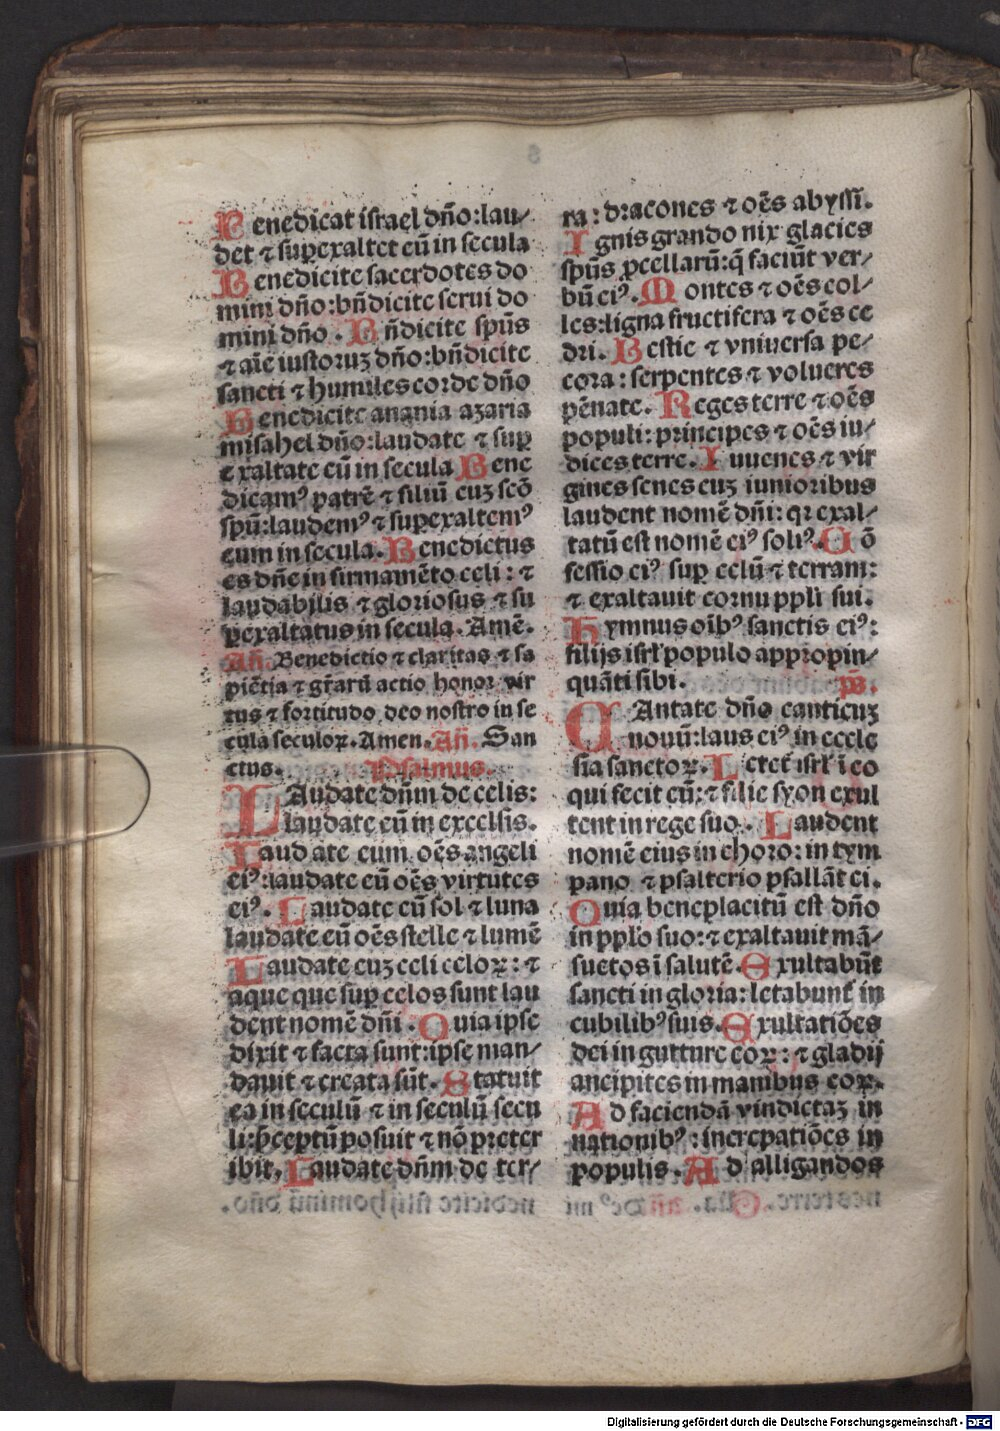 Benedicat israel dño:lau⸗
det ⁊ superexaltet eū in secula
Benedicite sacerdotes do
mini dño:bñdicite serui do
mini dño. Bñdicite spūs
⁊ aīe iustoruꝫ dño:bñdicite
sancti ⁊ humiles corde dño
Benedicite anania azaria
misahel dño:laudate ⁊ suꝑ
exaltate eū in secula Bene
dicamꝰ patrē ⁊ filiū cuꝫ scō
spū:laudemꝰ ⁊ suꝑexaltemꝰ
eum in secula. Benedictus
es dñe in firmamēto celi: ⁊
laudabilis ⁊ gloriosus ⁊ su
ꝑexaltatus in secula. Amē.
Añ. Benedictio ⁊ claritas ⁊ sa
piētia ⁊ gr̄arū actio honor vir
tus ⁊ fortitudo deo nostro in se
cula seculoꝝ. Amen. Añ. San
ctus. Psalmus.
LAudate dñm de celis:
laudate eū in excelsis.
Laudate eum oēs angeli
eiꝰ:laudate eū oēs virtutes
eiꝰ. Laudate eū sol ⁊ luna
laudate eū oēs stelle ⁊ lumē
Laudate euꝫ celi celoꝝ: ⁊
aque que suꝑ celos sunt lau
dent nomē dñi. Quia ipse
dixit ⁊ facta sunt:ipse man⸗
dauit ⁊ creata sūt. Statuit
ea in seculū ⁊ in seculū secu
li:p̄ceptū posuit ⁊ nō preter
ibit. Laudate dñm de ter⸗
ra: dracones ⁊ oēs abyssi.
Ignis grando nix glacies
spūs ꝓcellarū:q̄ faciūt ver⸗
bū eiꝰ. Montes ⁊ oēs col⸗
les:ligna fructifera ⁊ oēs ce
dri. Bestie ⁊ vniuersa pe⸗
cora: serpentes ⁊ volucres
pēnate. Reges terre ⁊ oēs
populi:principes ⁊ oēs iu⸗
dices terre. Iuuenes ⁊ vir
gines senes cuꝫ iunioribus
laudent nomē dñi: qꝛ exal⸗
tatū est nomē eiꝰ soliꝰ. Cō
fessio eiꝰ suꝑ celū ⁊ terram:
⁊ exaltauit cornu ppl̄i sui.
Hymnus oībꝰ sanctis eiꝰ:
filijs isrl̄ populo appropin⸗
quāti sibi. p̄s.
CAntate dño canticuꝫ
nouū:laus eiꝰ in eccle
sia sanctoꝝ. Letet̄ isrl̄ ī eo
qui fecit eū:⁊ filie syon exul
tent in rege suo. Laudent
nomē eius in choro: in tym
pano ⁊ psalterio psallāt ei.
Quia beneplacitū est dño
in ppl̄o suo:⁊ exaltauit mā⸗
suetos ī salutē. Exultabūt
sancti in gloria: letabunt̄ in
cubilibꝰ suis. Exultatiōes
dei in gutture eoꝝ: ⁊ gladij
ancipites in manibus eoꝝ.
Ad faciendā vindictaꝫ in
nationibꝰ: increpatiōes in
populis. Ad alligandos
Digitalisierung gefördert durch die Deutsche Forschungsgemeinschaft - DFG